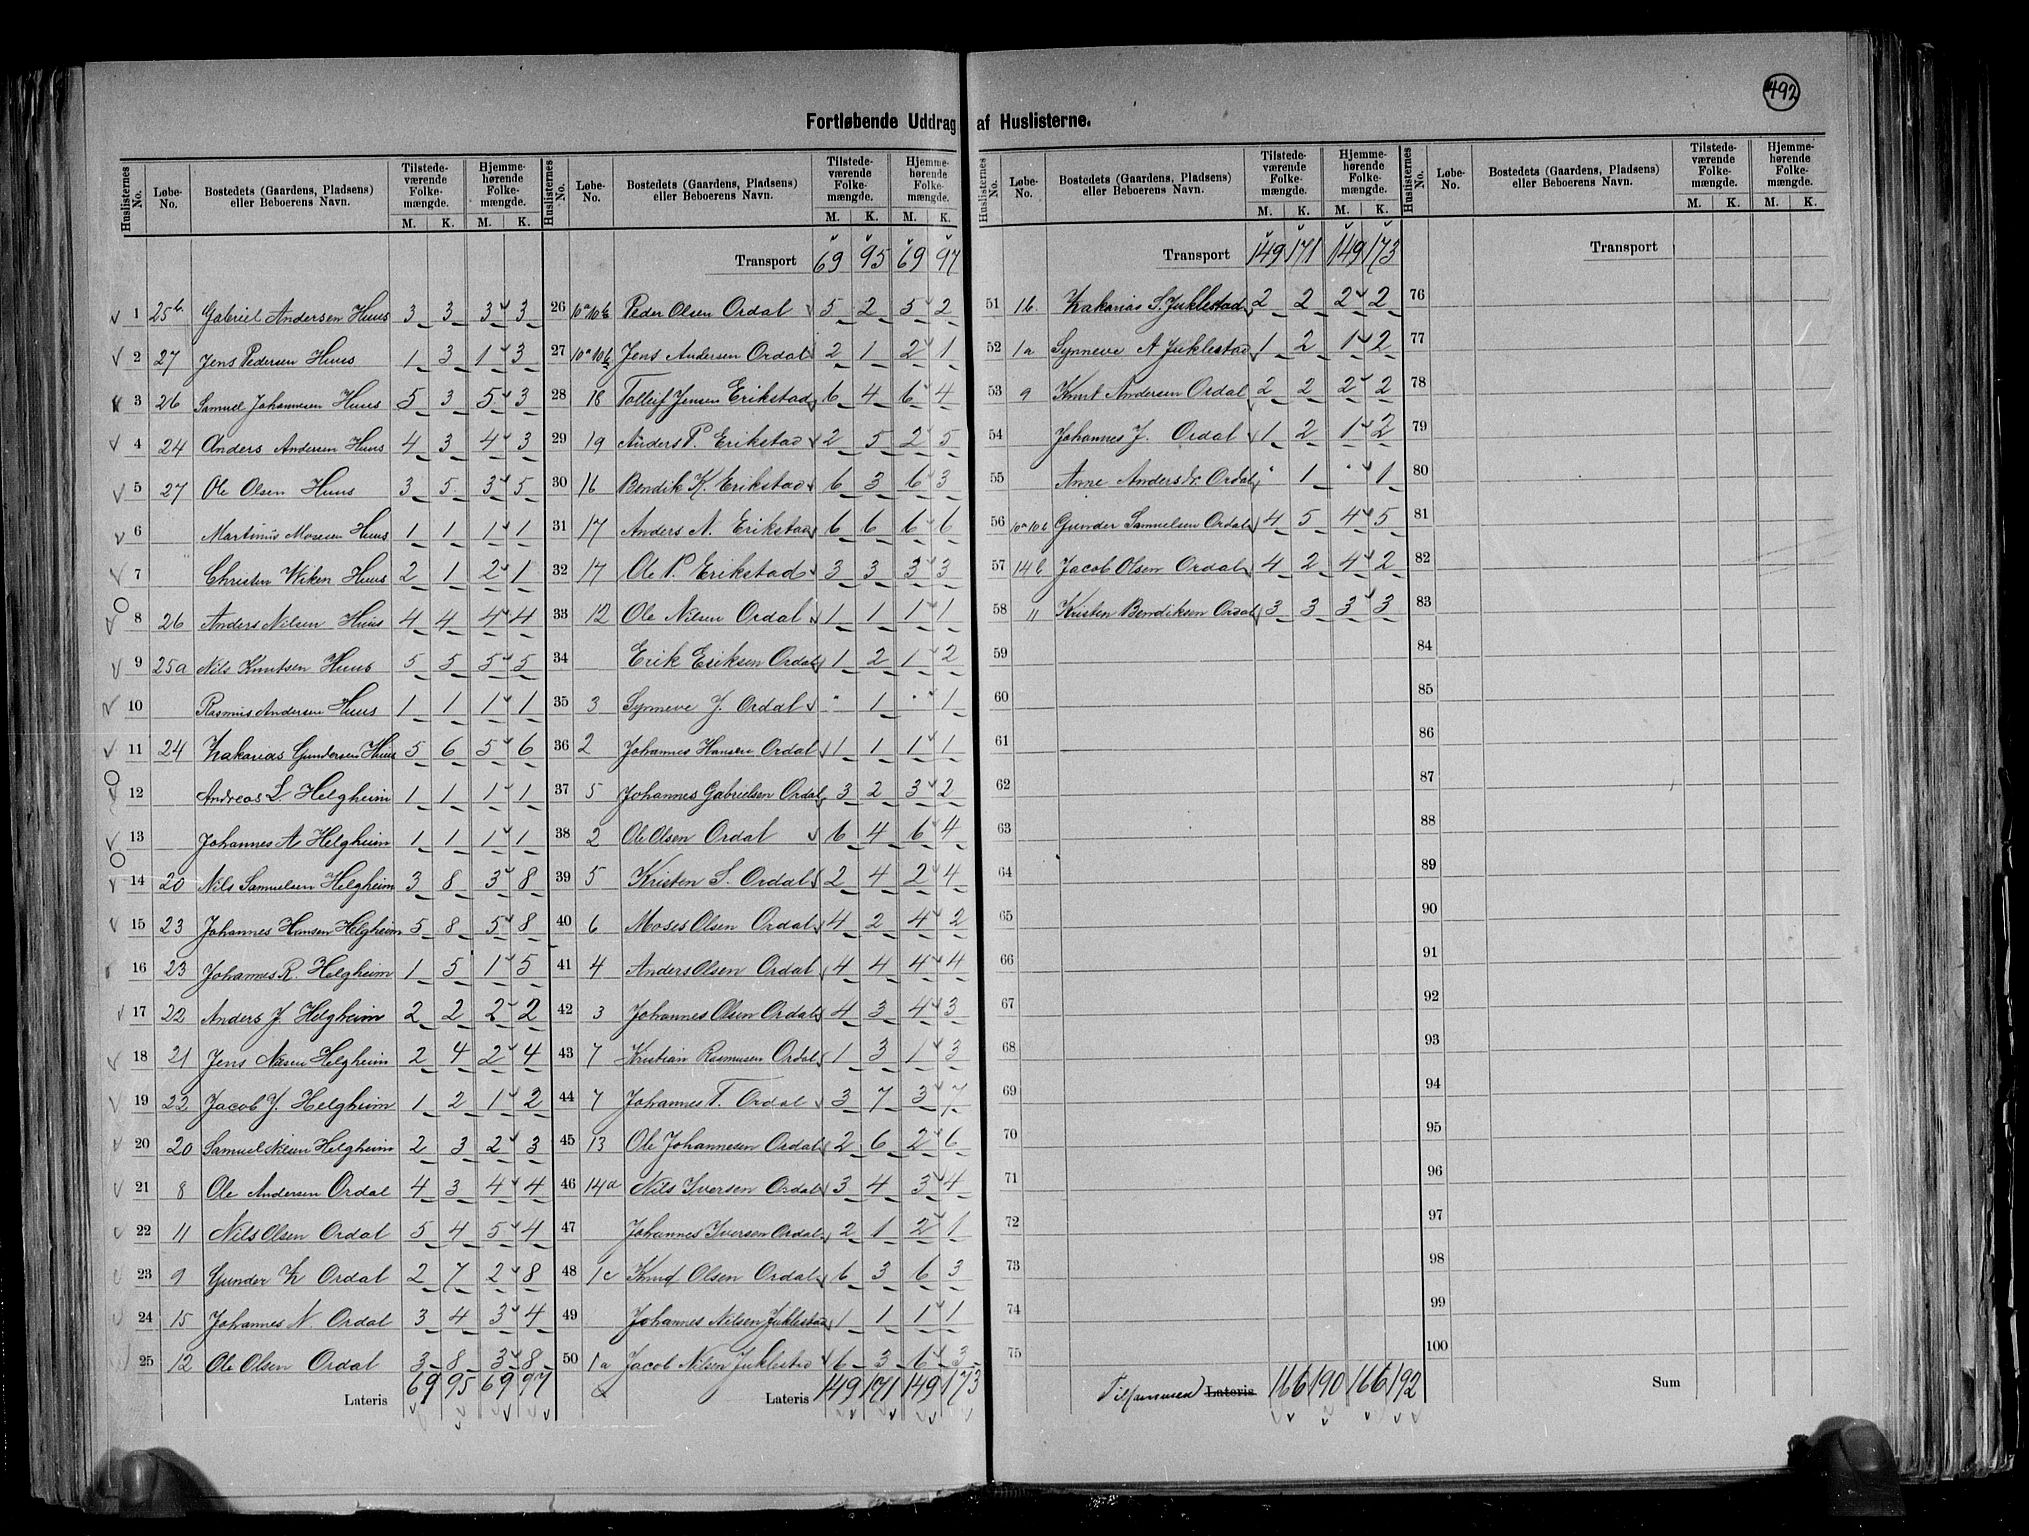 492
Fortløbende Uddrag af Huslisterne.
Huslisternes No. | Løbe-No. | Bostedets (Gaardens, Pladsens) eller Beboerens Navn. | Tilstedeværende Folkemængde. M. K. | Hjemmehørende Folkemængde. M. K.
1 25b Gabriel Andersen Huus 3 3 3 3
2 27 Jens Pedersen Huus 1 3 1 3
3 26 Samuel Johannesen Huus 5 3 5 3
4 24 Anders Andersen Huus 4 3 4 3
5 27 Ole Olsen Huus 3 5 3 5
6 Martinus Mosesen Huus 1 1 1 1
7 Christen Wiken Huus 2 1 2 1
8 26 Anders Nilsen Huus 4 4 4 4
9 25a Nils Knutsen Huus 5 5 5 5
10 Rasmus Andersen Huus 1 1 1 1
11 24 Zakarias Gundersen Huus 5 6 5 6
12 Andreas L. Helgheim 1 1 1 1
13 Johannes A Helgheim 1 1 1 1
14 20 Nils Samuelsen Helgheim 3 8 3 8
15 23 Johannes Hansen Helgheim 5 8 5 8
16 23 Johannes R. Helgheim 1 5 1 5
17 22 Anders J. Helgheim 2 2 2 2
18 21 Jens Næsen Helgheim 2 4 2 4
19 22 Jacob J. Helgheim 1 2 1 2
20 20 Samuel Nilsen Helgheim 2 3 2 3
21 8 Ole Andersen Ordal 4 3 4 4
22 11 Nils Olsen Ordal 5 4 5 4
23 9 Gunder Z Ordal 2 7 2 8
24 15 Johannes N. Ordal 3 4 3 4
25 12 Ole Olsen Ordal 3 8 3 8
Lateris 69 95 69 97
Huslisternes No. | Løbe-No. | Bostedets (Gaardens, Pladsens) eller Beboerens Navn. | Tilstedeværende Folkemængde. M. K. | Hjemmehørende Folkemængde. M. K.
Transport 69 95 69 97
26 10a 10b Peder Olsen Ordal 5 2 5 2
27 10a 10b Jens Andersen Ordal 2 1 2 1
28 18 Tolleif Jensen Erikstad 6 4 6 4
29 19 Anders P. Erikstad 2 5 2 5
30 16 Bendik K. Erikstad 6 3 6 3
31 17 Anders N. Erikstad 6 6 6 6
32 17 Ole P. Erikstad 3 3 3 3
33 12 Ole Nilsen Ordal 1 1 1 1
34 Erik Eriksen Ordal 1 2 1 2
35 3 Synneve J. Ordal " 1 " 1
36 2 Johannes Hansen Ordal 1 1 1 1
37 5 Johannes Gabrielsen Ordal 3 2 3 2
38 2 Ole Olsen Ordal 6 4 6 4
39 5 Kristen S. Ordal 2 4 2 4
40 6 Moses Olsen Ordal 4 2 4 2
41 4 Anders Olsen Ordal 4 4 4 4
42 3 Johannes Olsen Ordal 4 3 4 3
43 7 Kristian Rasmusen Ordal 1 3 1 3
44 7 Johannes T. Ordal 3 7 3 7
45 13 Ole Johannesen Ordal 2 6 2 6
46 14a Nils Iversen Ordal 3 4 3 4
47 Johannes Iversen Ordal 2 1 2 1
48 1c Knut Olsen Ordal 6 3 6 3
49 Johannes Nilsen Juklestad 1 1 1 1
50 1a Jacob Nilsen Juklestad 6 3 6 3
Lateris 149 171 149 173
Huslisternes No. | Løbe-No. | Bostedets (Gaardens, Pladsens) eller Beboerens Navn. | Tilstedeværende Folkemængde. M. K. | Hjemmehørende Folkemængde. M. K.
Transport 149 171 149 173
51 1b. Zakarias S. Juklestad 2 2 2 2
52 1a Synneve A Juklestad 1 2 1 2
53 9 Knut Andersen Ordal 2 2 2 2
54 Johannes J. Ordal 1 2 1 2
55 Anne Andersdr. Ordal " 1 " 1
56 10a 10b Gunder Samuelsen Ordal 4 5 4 5
57 14b Jacob Olsen Ordal 4 2 4 2
58 11 Kristen Bendiksen Ordal 3 3 3 3
59
60
61
62
63
64
65
66
67
68
69
70
71
72
73
74
75
Tilsammen Lateris 166 190 166 192
Huslisternes No. | Løbe-No. | Bostedets (Gaardens, Pladsens) eller Beboerens Navn. | Tilstedeværende Folkemængde. M. K. | Hjemmehørende Folkemængde. M. K.
Transport
76
77
78
79
80
81
82
83
84
85
86
87
88
89
90
91
92
93
94
95
96
97
98
99
100
Sum